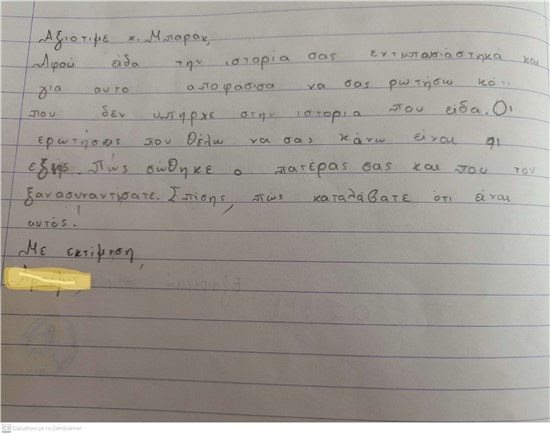 Αξιότιμε κ. Μπαράκ,
Αφού είδα την ιστορία σας εντυπωσιάστηκα και
για αυτο αποφάσισα να σας ρωτήσω κάτι
που δεν υπήρχε στην ιστορία που είδα. Οι
ερωτήσεις που θέλω να σας κάνω είναι οι
εξής. Πώς σώθηκε ο πατέρας σας και που τον
ξανασυναντήσατε. Επίσης, πώς καταλάβατε ότι είναι
αυτός.
Με εκτίμηση,
Σαρώθηκε με το CamScanner